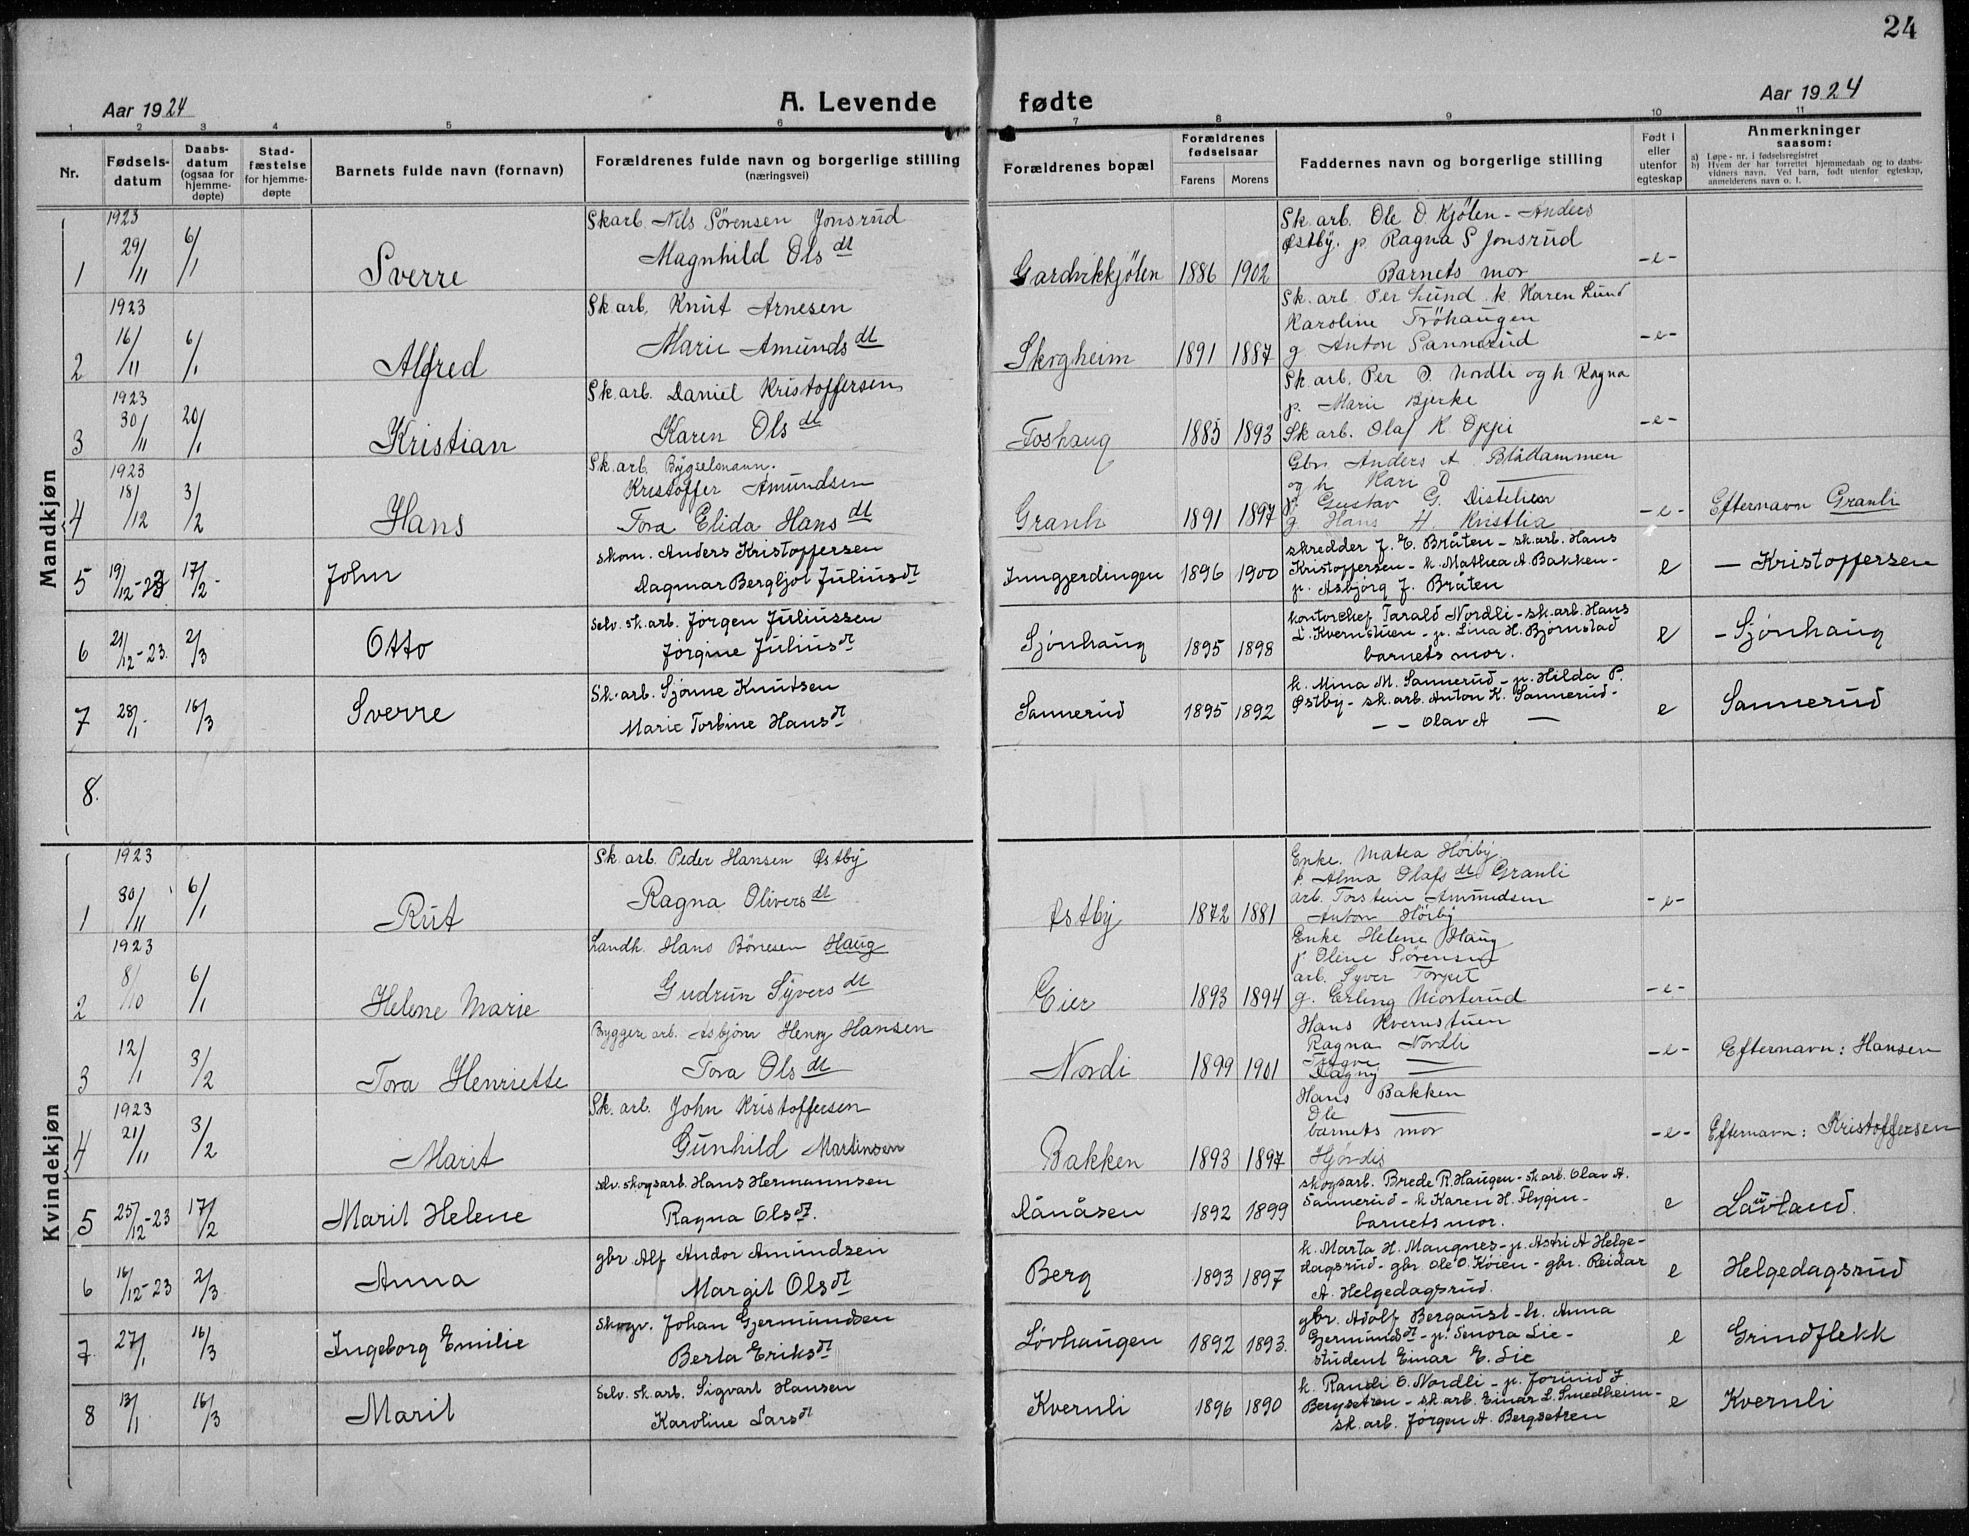 24
Aar 1924
A. Levende fødte
Aar 1924
1 2 3 4 5 6 7 8 9 10 11
Nr.
Fødsels-
datum
Daabs-
datum
(ogsaa for
hjemme-
døpte)
Stad-
fæstelse
for hjemme-
døpte
Barnets fulde navn (fornavn)
Forældrenes fulde navn og borgerlige stilling
(næringsvei)
Forældrenes bopæl
Forældrenes
fødselsaar
Farens Morens
Faddernes navn og borgerlige stilling
Født i
eller
utenfor
egteskap
Anmerkninger
saasom:
a) Løpe-nr. i fødselsregistret
b) Hvem der har forrettet hjemmedaab og to daabs-
vidners navn. Ved barn, født utenfor egteskap,
anmelderens navn o. l.
Mandkjøn
1 1923 29/11 6/1 Sverre
Sk arb. Nils Sørensen Jonsrud
Magnhild Olsdt
Gardvikkjølen 1886 1902
Sk. arb. Ole O. Kjølen - Anders
Østby. p Ragna S Jonsrud
Barnets mor
-e-
2 1923 16/11 6/1 Alfred
Sk arb, Knut Arnesen
Marie Amundsdt
Skogheim 1891 1887
Sk. arb. Per Lund. k. Karen Lund
Karoline Trøhaugen
g Anton Sannerud
-e-
3 1923 30/11 20/1 Kristian
Sk arb. Daniel Kristoffersen
Karen Olsdt
Foshaug 1885 1893
Sk arb. Per O. Nordli og h Ragna
p. Marie Bjerke
Sk arb. Olaf K. Oppi
-e-
4 1923 18/12 3/2 Hans
Sk. arb. Bygselmann.
Kristoffer Amundsen
Tora Elida Hansdt
Granli 1891 1897
Gbr. Anders A. Blåttammen
og h Kari O —
p. Gustav G.
g Hans H. Kristlia
-e- Efternavn Granli
5 19/12-23 17/2- John
skom. Anders Kristoffersen
Dagmar Bergljot Juliusdt
Inngjerdingen 1896 1900
skredder J. E. Bråten - sk. arb. Hans
Kristoffersen - k. Mathea A. Bakken -
p. Asbjørg J. Bråten
e — Kristoffersen
6 21/12-23. 2/3 Otto
Selv. sk. arb. Jørgen Juliussen
Jørgine Juliusdt
Sjønhaug 1895 1898
kontorchef Tarald Nordli - sk. arb. Hans
L. Kvernstuen - p. Lina H. Bjørnstad
barnets mor.
e - Sjønhaug
7 28/1. 16/3 Sverre
Sk. arb. Sjønne Knutsen
Marie Torbine Hansdt
Sannerud 1895 1892
k. Mina M. Sannerud - p. Hilda P.
Østby - sk. arb. Anton K. Sannerud -
— — Olav A —
e Sannerud
8.
Kvindekjøn
1 1923 30/11 6/1 Rut
Sk arb. Peder Hansen Østby
Ragna Oliversdt
Østby 1872 1881
Enke. Matea Høiby
p. Alma Olafsdt Granli
arb. Torstein Amundsen
Anton Høiby
-e-
2 1923 8/10 6/1 Helene Marie
Landh. Hans Bónesen Haug
Gudrun Syversdt
Eier 1893 1894
Enke Helene Haug
p Oline Sørensen
arb. Syver Torpet
g. Erling Mosterud
-e-
3 12/1 3/2 Tora Henriette
Bygger arb. Asbjørn Henry Hansen
Tora Olsdt
Nordi 1899 1901
Hans Kvernstuen
Ragna Nordli
Trygve —
Dagny —
-e- Efternavn: Hansen
4 1923 21/11 3/2 Marit
Sk. arb. John Kristoffersen
Gunhild Martinsen
Bakken 1893 1897
Hans Bakken
Ole —
barnets mor
Hjørdis
-e- Efternavn: Kristoffersen
5 25/12-23 17/2 Marit Helene
selv. skogsarb. Hans Hermannsen
Ragna Olsdt.
Dånåsen 1892 1899
skogsarb. Brede R. Haugen - sk arb. Olav A.
Sannerud - k Karen H. Flygin -
barnets mor.
e Lauvland.
6 16/12-23 2/3 Anna
gbr Alf Andor Amundsen
Margit Olsdt
Berg 1893 1897
k. Marta H. Maugnes - p. Astri A Helge-
dagsrud - gbr Ole O. Køien - gbr. Reidar
A. Helgedagsrud.
e Helgedagsrud
7. 27/1 16/3 Ingeborg Emilie
Skogv. Johan Gjermundsen
Berta Eriksdt
Lövhaugen 1892 1893.
gbr. Adolf Bergaust - k. Anna
Gjermundsdt - p. Senora Lie -
student Einar E. Lie
e Grindflekk
8 13/1 16/3 Marit
Selv. sk. arb. Sigvart Hansen
Karoline Larsdt
Kvernli 1896 1890
k. Randi O. Nordli - p. Jorund J.
Bergsetren - sk. arb. Einar L. Smedheim -
sk. arb. Jørgen A. Bergsetren
e Kvernli